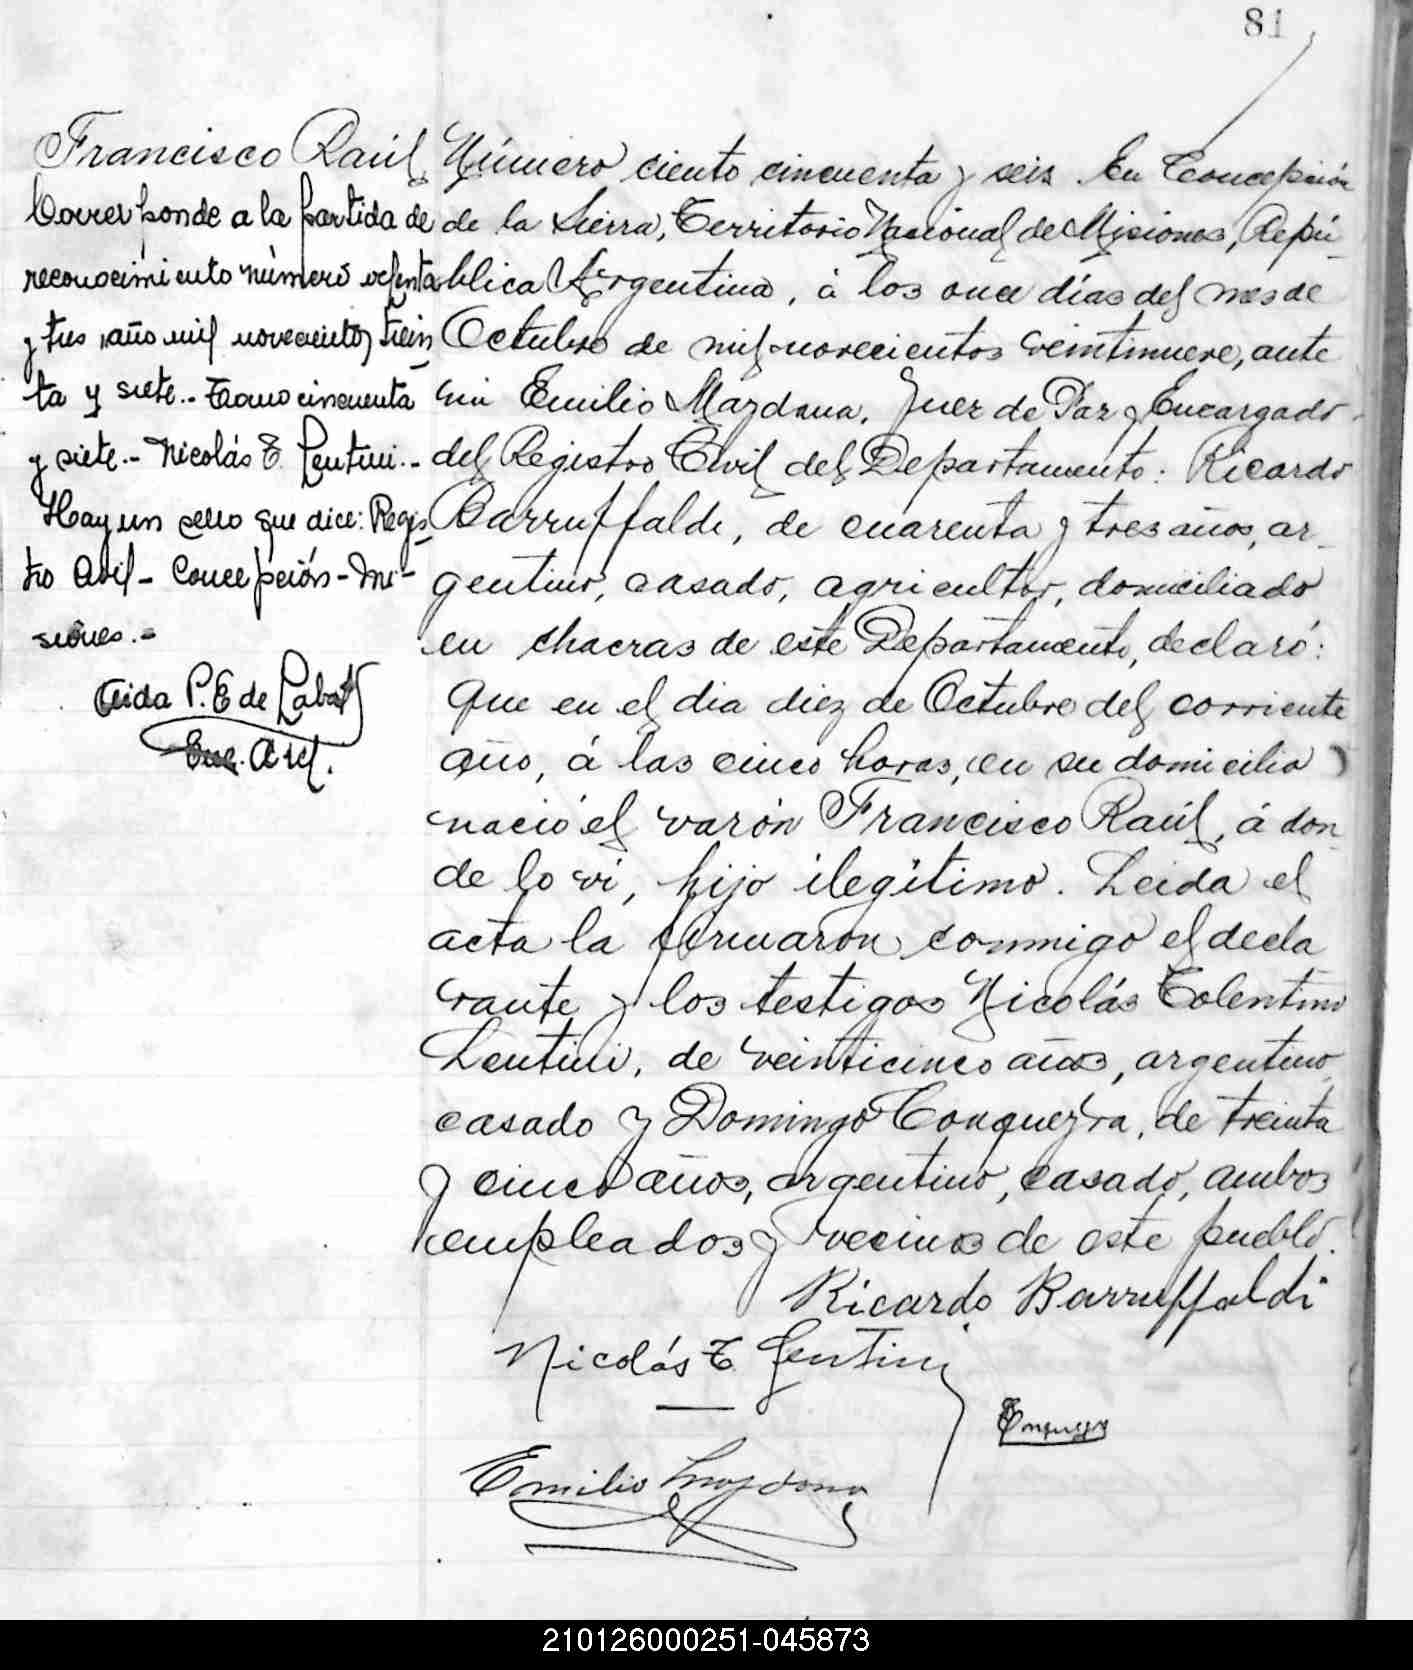 81
Francisco Raúl
Corresponde a la partida de
reconocimiento número ochenta
y tres, año mil novecientos trein
ta y siete.- Tomo cincuenta
y siete.- Nicolás T. Lentini.-
Hay un sello que dice: Regis
tro Civil - Concepción - Mi-
siones.-
Aida P. E de Labat
Enc. Arch.
Número ciento cincuenta y seis. En Concepción
de la Sierra, Territorio Nacional de Misiones, Repú-
blica Argentina, á los once días del mes de
Octubre de mil novecientos veintinueve, ante
mi Emilio Maydana, Juez de Paz y Encargado
del Registro Civil del Departamento: Ricardo
Barruffaldi, de cuarenta y tres años, ar-
gentino, casado, agricultor, domiciliado
en chacras de este Departamento, declaró:
Que en el dia diez de Octubre del corriente
año, á las cinco horas, en su domicilio
nació el varón Francisco Raúl, á don
de lo vi, hijo ilegítimo. Leida el
acta la firmaron conmigo el decla
rante y los testigos Nicolás Tolentino
Lentini, de veinticinco años, argentino,
casado y Domingo Conqueyra, de treinta
y cinco años, argentino, casado, ambos
empleados y vecinos de este pueblo.
Ricardo Barruffaldi
Nicolás T. Lentini
Emilio Maydana
210126000251-045873